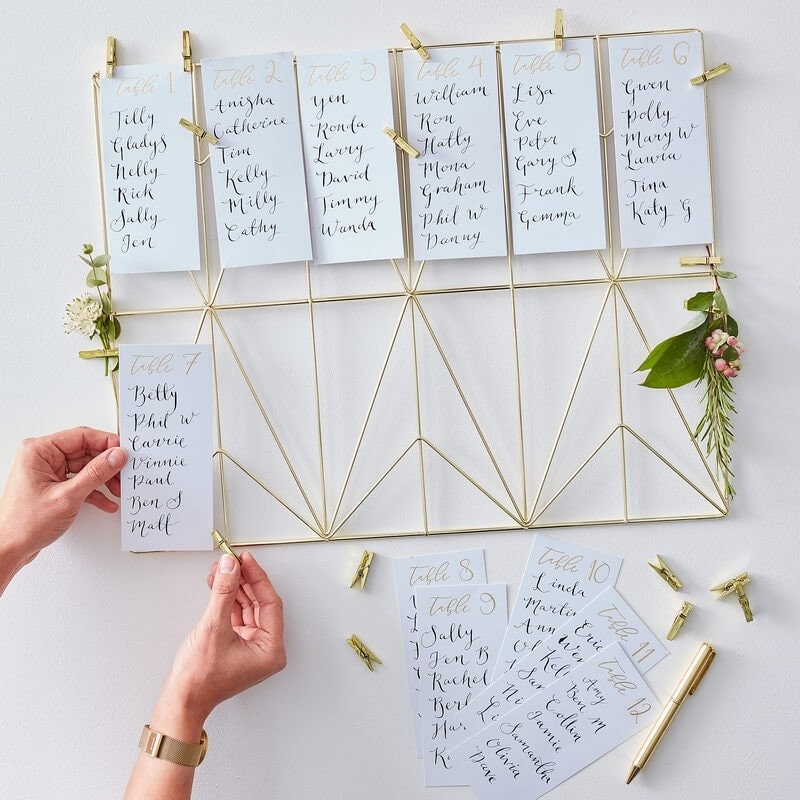 Table 1
Tilly
Gladys
Nelly
Rick
Sally
Jen
Table 2
Anisha
Catherine
Tim
Kelly
Milly
Cathy
Table 3
Yen
Ronda
Larry
David
Timmy
Wanda
Table 4
William
Ron
Hatty
Mona
Graham
Phil W
Danny
Table 5
Lisa
Eve
Peter
Gary S
Frank
Gemma
Table 6
Gwen
Polly
Mary W
Laura
Tina
Katy G
Table 7
Betty
Phil W
Carrie
Vinnie
Paul
Ben S
Matt
Table 8
Table 9
Sally
Jen B
Rachel
Table 10
Linda
Ann
Table 11
Eric
Table 12
Amy
Ben M
Collin
Jamie
Samantha
Olivia
Dave